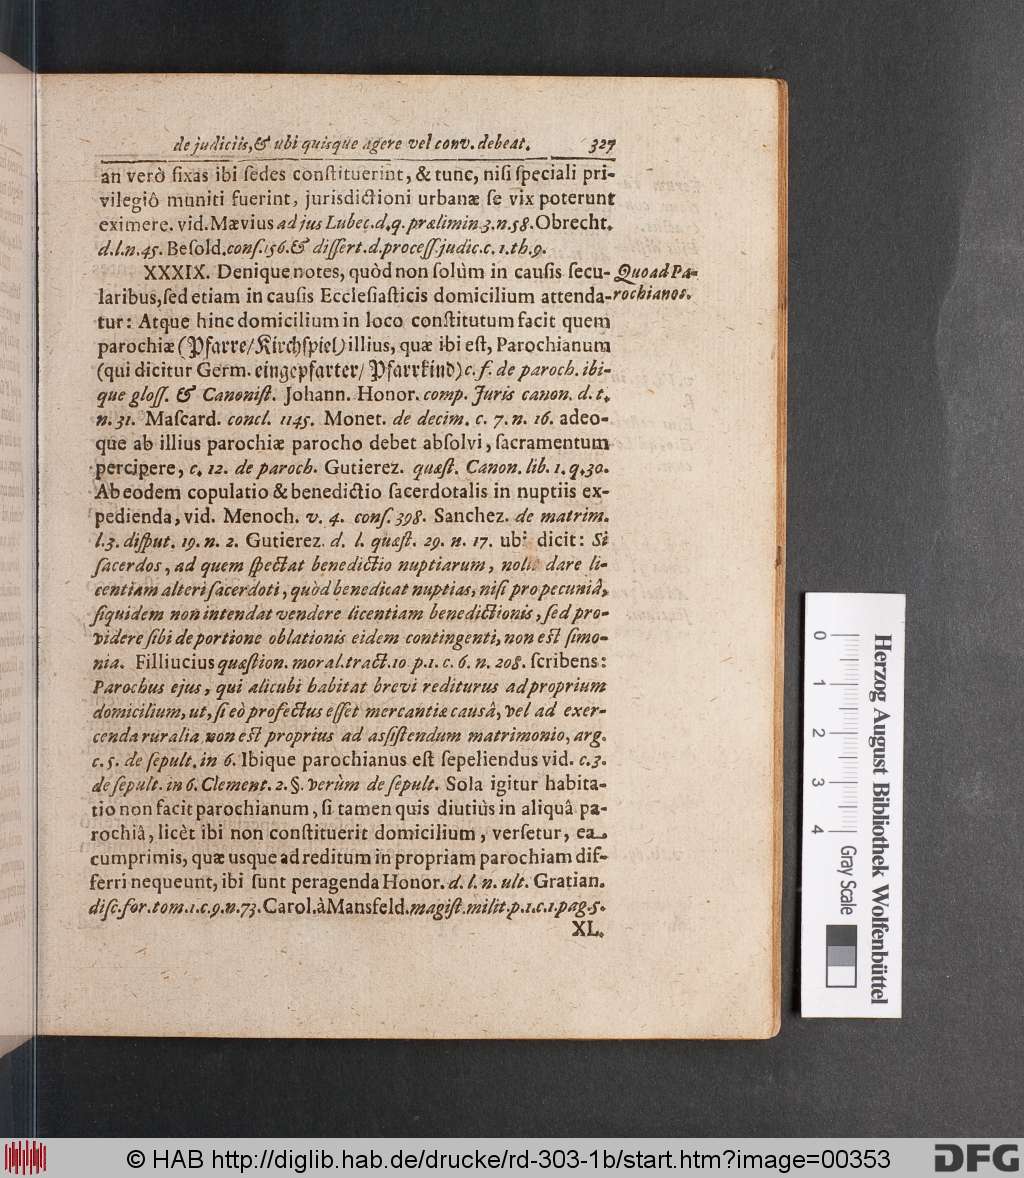 de judiciis, & ubi quisque agere vel conv. debeat. 327
an verò fixas ibi ſedes conſtituerint, & tunc, niſi ſpeciali pri-
vilegiô muniti fuerint, jurisdictioni urbanæ ſe vix poterunt
eximere. vid. Mævius ad jus Lubec. d. q. prælimin. 3. n. 58. Obrecht.
d. l. n. 45. Beſold. conſ. 156. & diſſert. d. proceſſ. judic. c. 1. th. 9.
XXXIX. Denique notes, quòd non ſolùm in cauſis ſecu-
Quoad Pa-
laribus, ſed etiam in cauſis Eccleſiaſticis domicilium attenda-
rochianos.
tur: Atque hinc domicilium in loco conſtitutum facit quem
parochiæ (Pfarre/ Kirchſpiel) illius, quæ ibi eſt, Parochianum
(qui dicitur Germ. eingepfarter/ Pfarrkind) c. f. de paroch. ibi-
que gloſſ. & Canoniſt. Johann. Honor. comp. Juris canon. d. t.
n. 31. Maſcard. concl. 1145. Monet. de decim. c. 7. n. 16. adeo-
que ab illius parochiæ parocho debet abſolvi, ſacramentum
percipere, c. 12. de paroch. Gutierez. quæſt. Canon. lib. 1. q. 30.
Ab eodem copulatio & benedictio ſacerdotalis in nuptiis ex-
pedienda, vid. Menoch. v. 4. conſ. 398. Sanchez. de matrim.
l. 3. diſput. 19. n. 2. Gutierez. d. l. quæſt. 29. n. 17. ubi dicit: Si
ſacerdos, ad quem ſpectat benedictio nuptiarum, nolit dare li-
centiam alteri ſacerdoti, quòd benedicat nuptias, niſi pro pecuniâ,
ſiquidem non intendat vendere licentiam benedictionis, ſed pro-
videre ſibi de portione oblationis eidem contingenti, non eſt ſimo-
nia. Filliucius quæſtion. moral. tract. 10 p. 1. c. 6. n. 208. ſcribens:
Parochus ejus, qui alicubi habitat brevi rediturus ad proprium
domicilium, ut, ſi eò profectus eſſet mercantiæ causâ, vel ad exer-
cenda ruralia non eſt proprius ad asſiſtendum matrimonio, arg.
c. 5. de ſepult. in 6. Ibique parochianus eſt ſepeliendus vid. c. 3.
de ſepult. in 6. Clement. 2. §. verùm de ſepult. Sola igitur habita-
tio non facit parochianum, ſi tamen quis diutiùs in aliquâ pa-
rochiâ, licèt ibi non conſtituerit domicilium, verſetur, ea
cumprimis, quæ usque ad reditum in propriam parochiam dif-
ferri nequeunt, ibi ſunt peragenda Honor. d. l. n. ult. Gratian.
diſc. for. tom. 1. c. 9. n. 73. Carol. à Mansfeld. magiſt. milit. p. 1. c. 1. pag. 5.
XL.
Herzog August Bibliothek Wolfenbüttel
0 1 2 3 4 Gray Scale
© HAB http://diglib.hab.de/drucke/rd-303-1b/start.htm?image=00353
DFG